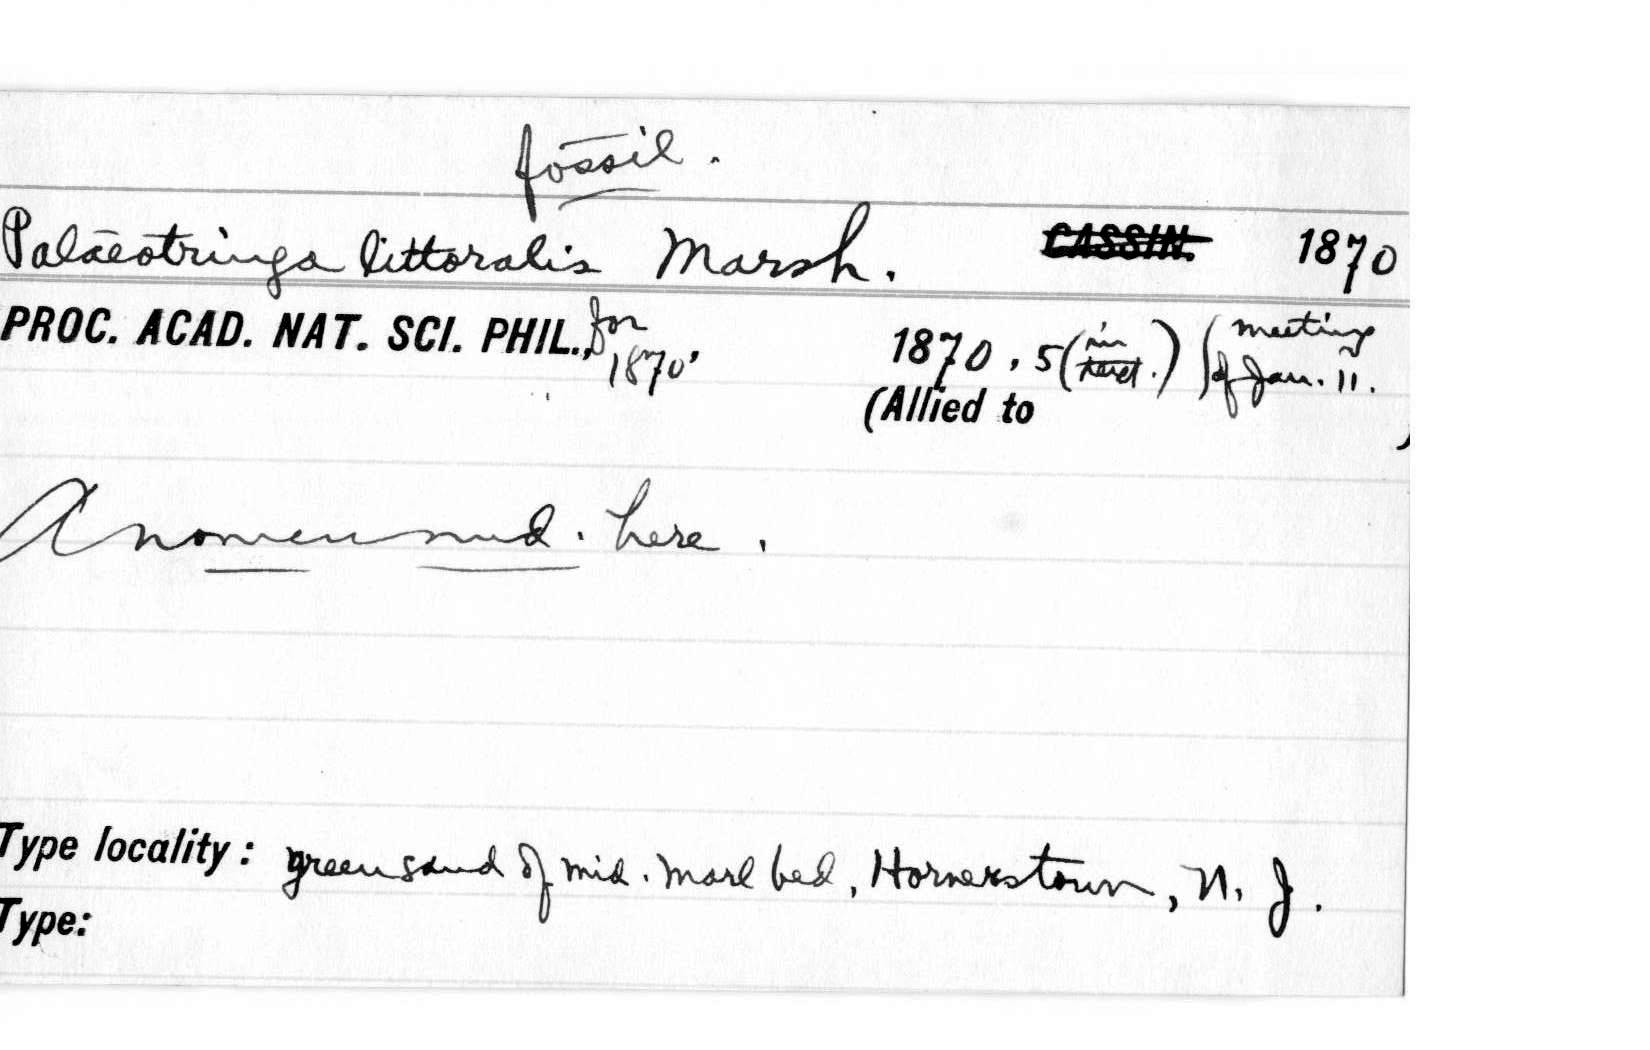 fossil.
Palaeotringa littoralis Marsh. CASSIN. 1870
PROC. ACAD. NAT. SCI. PHIL., for 1870, 1870, 5 (in text.) (meeting of Jan. 11.
(Allied to )
A nomen nud. here.
Type locality: greensand of mid. marl bed, Hornerstown, N. J.
Type: